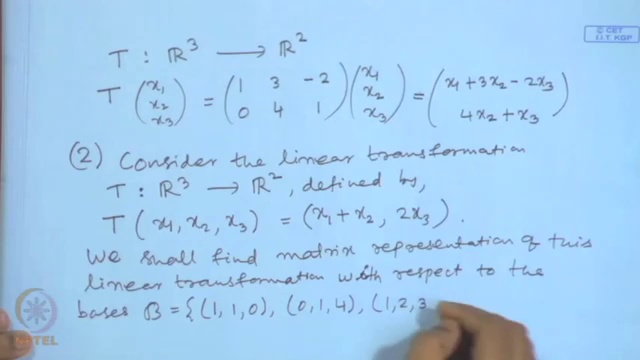 © CET
I.I.T. KGP
T : ℝ³ ⟶ ℝ²
T (x₁ x₂ x₃) = (1 3 -2 0 4 1) (x₁ x₂ x₃) = (x₁ + 3x₂ - 2x₃ 4x₂ + x₃)
(2) Consider the linear transformation
T : ℝ³ ⟶ ℝ², defined by,
T (x₁, x₂, x₃) = (x₁ + x₂, 2x₃).
We shall find matrix representation of this
linear transformation with respect to the
bases B = {(1, 1, 0), (0, 1, 4), (1, 2, 3
NPTEL